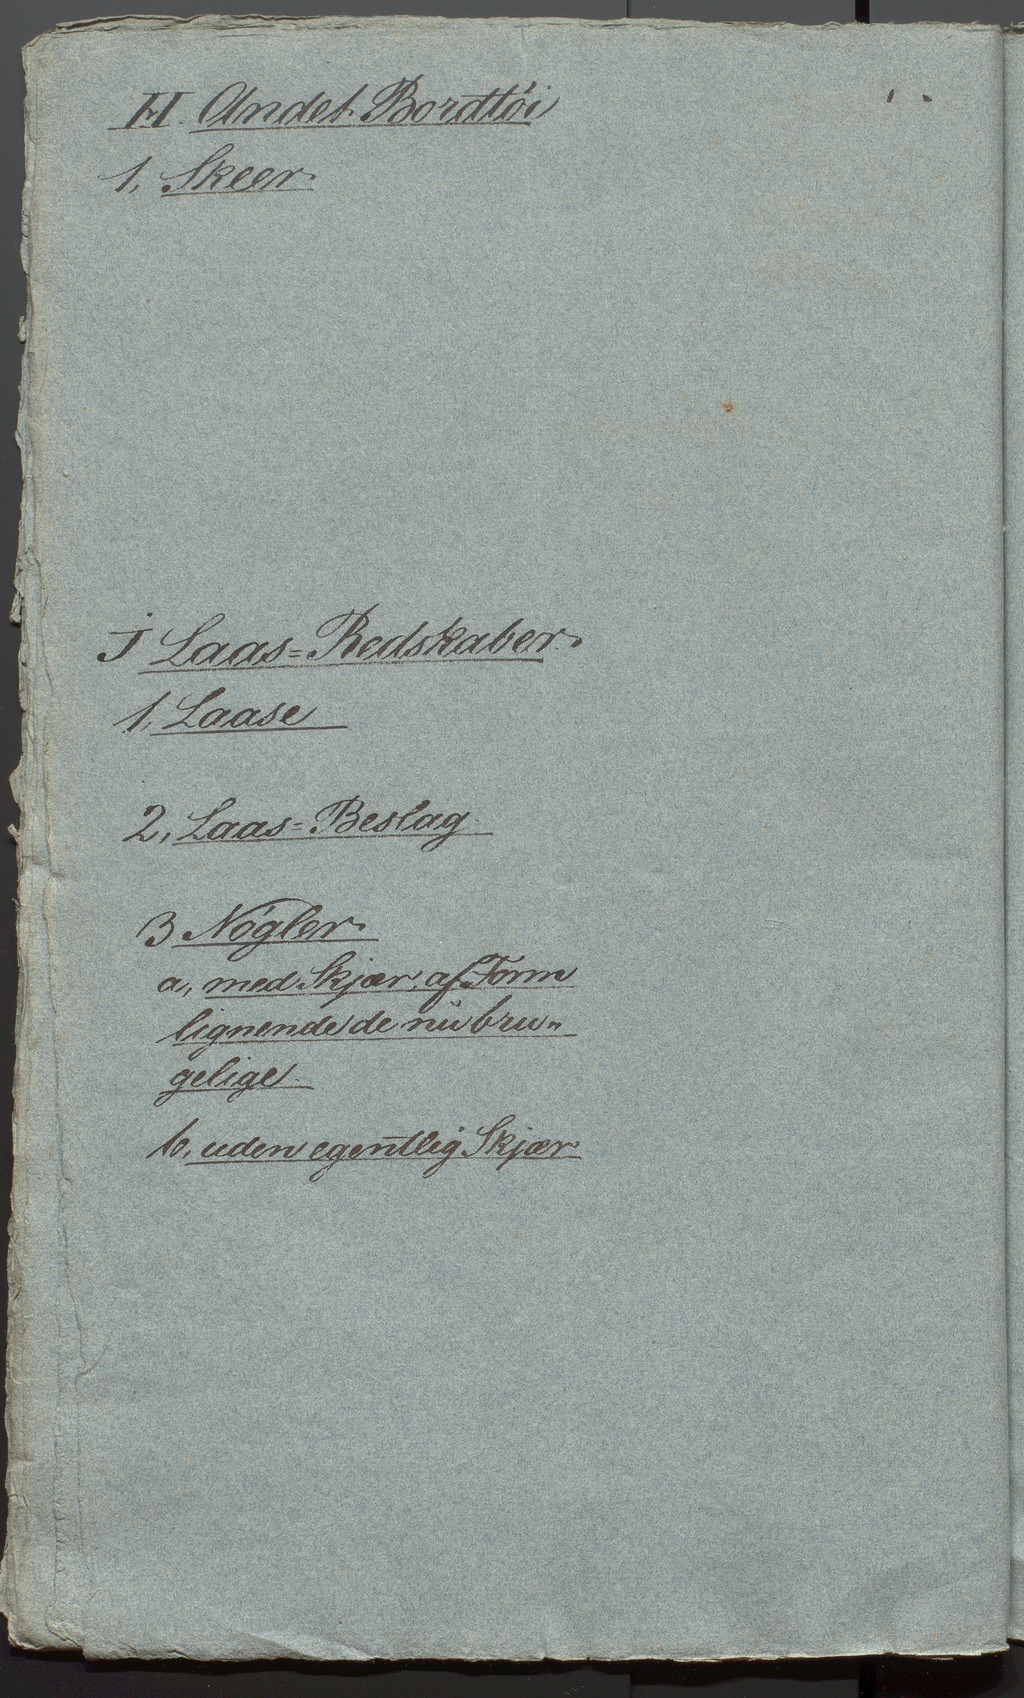 H. Andet Bordtöi
1, Skeer.
J Laas=Redskaber.
1, Laase
2, Laas=Beslag.
3 Nögler.
a, med Skjær, af Form
lignende de nu bru„
gelige.
b, uden egentlig Skjær